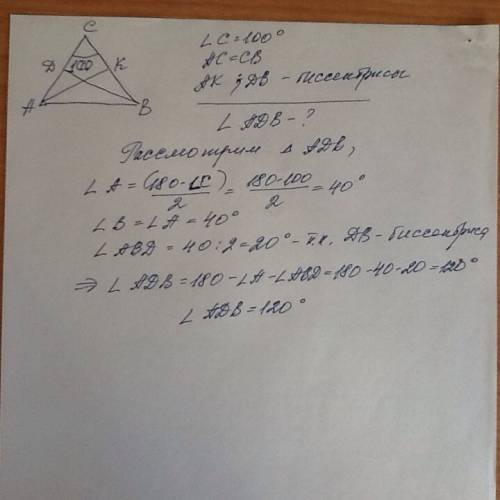 C
D 100 K
A B
∠C=100°
AC=CB
AK и DB - биссектрисы
∠ADB-?
Рассмотрим Δ ADB,
∠A=(180-∠C)/2=(180-100)/2=40°
∠B=∠A=40°
∠ABD=40:2=20°-т.к. DB-биссектриса
⇒∠ADB=180-∠A-∠ABD=180-40-20=120°
∠ADB=120°